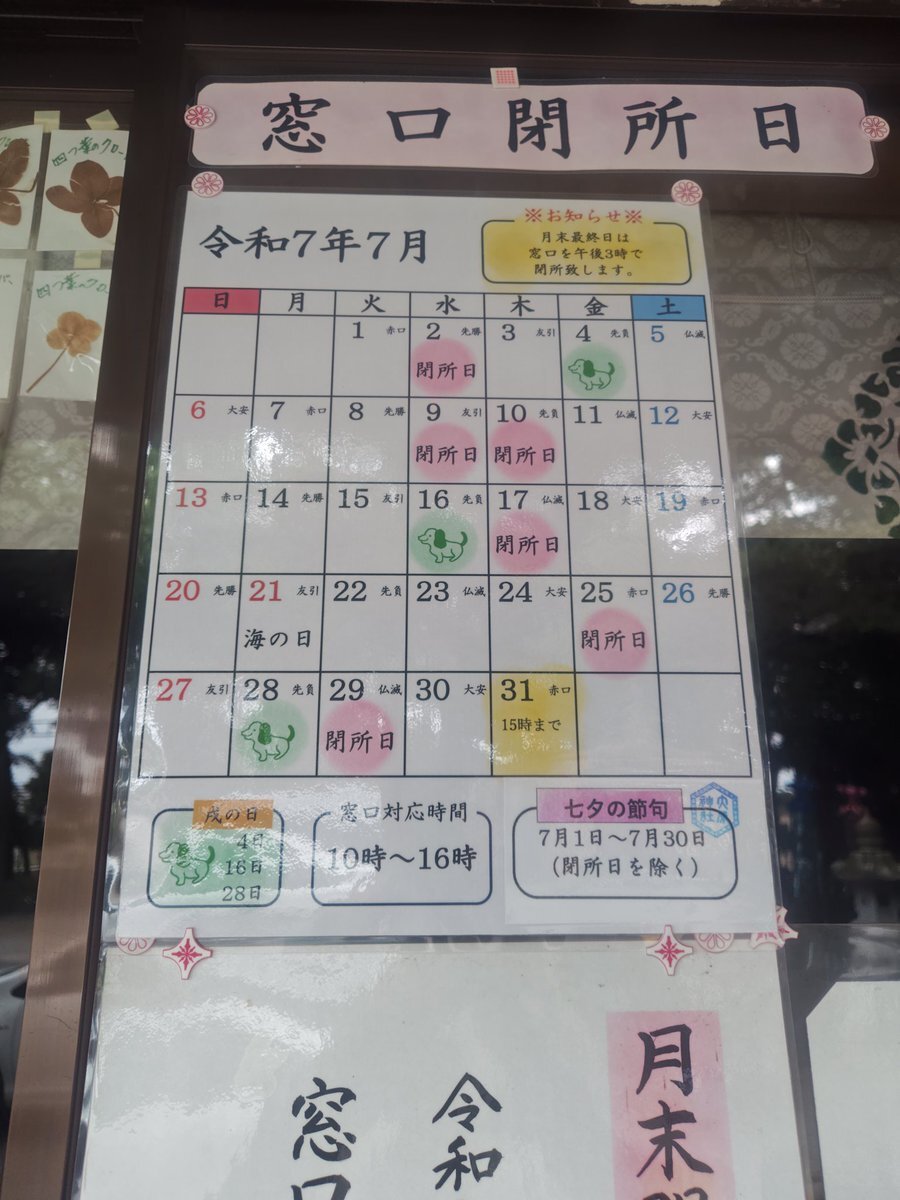 窓口閉所日
令和7年7月
※お知らせ※
月末最終日は
窓口を午後3時で
閉所致します。
日 月 火 水 木 金 土
1 赤口 2 先勝 3 友引 4 先負 5 仏滅
閉所日
6 大安 7 赤口 8 先勝 9 友引 10 先負 11 仏滅 12 大安
閉所日 閉所日
13 赤口 14 先勝 15 友引 16 先負 17 仏滅 18 大安 19 赤口
閉所日
20 先勝 21 友引 22 先負 23 仏滅 24 大安 25 赤口 26 先勝
海の日 閉所日
27 友引 28 先負 29 仏滅 30 大安 31 赤口
閉所日 15時まで
戌の日
4日
16日
28日
窓口対応時間
10時～16時
七夕の節句
7月1日～7月30日
(閉所日を除く)
月末
令和
窓口
四つ葉のクロー
四つ葉のクロー